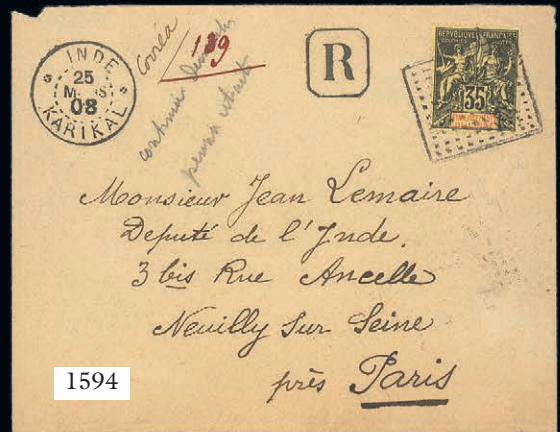 INDE
25
MARS
08
KARIKAL
Corréa
139
R
REPUBLIQUE FRANCAISE
35
Monsieur Jean Lemaire
Deputé de l'Inde.
3 bis Rue Ancelle
Neuilly Sur Seine
près Paris
1594